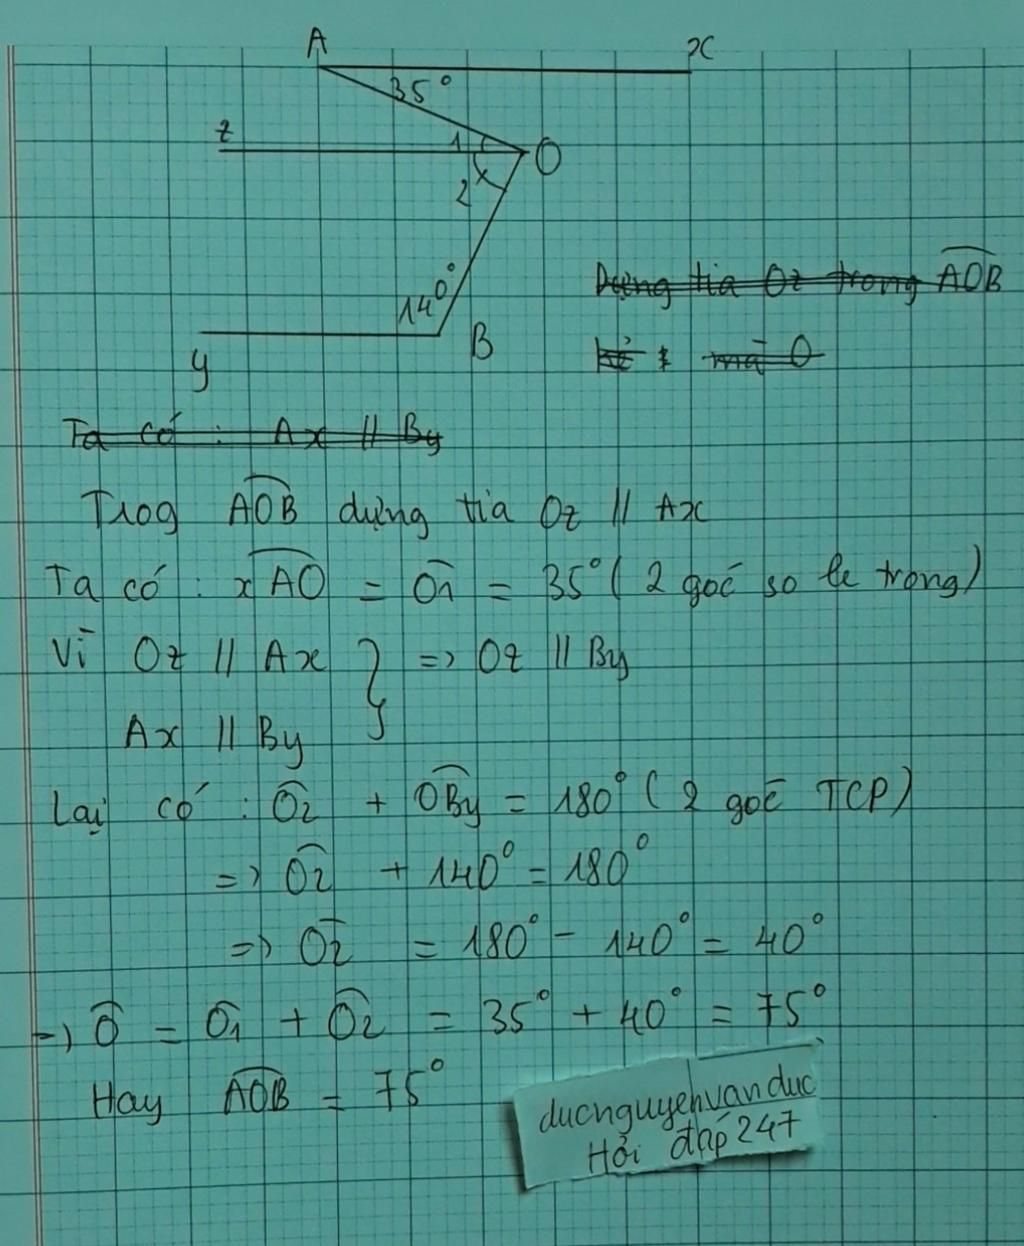 A x
35°
z 1 O
2 x
140°
y B
Dựng tia Oz trong AOB
kẻ mà O
Ta có : Ax // By
Trog AOB dựng tia Oz // Ax
Ta có : xAO = O1 = 35° ( 2 goć so le trong)
Vì Oz // Ax } => Oz // By
Ax // By
Lại có : O2 + OBy = 180° ( 2 goć TCP)
=> O2 + 140° = 180°
=> O2 = 180° - 140° = 40°
=> O = O1 + O2 = 35° + 40° = 75°
Hay AOB = 75°
ducnguyenvanduc
Hỏi đáp 247